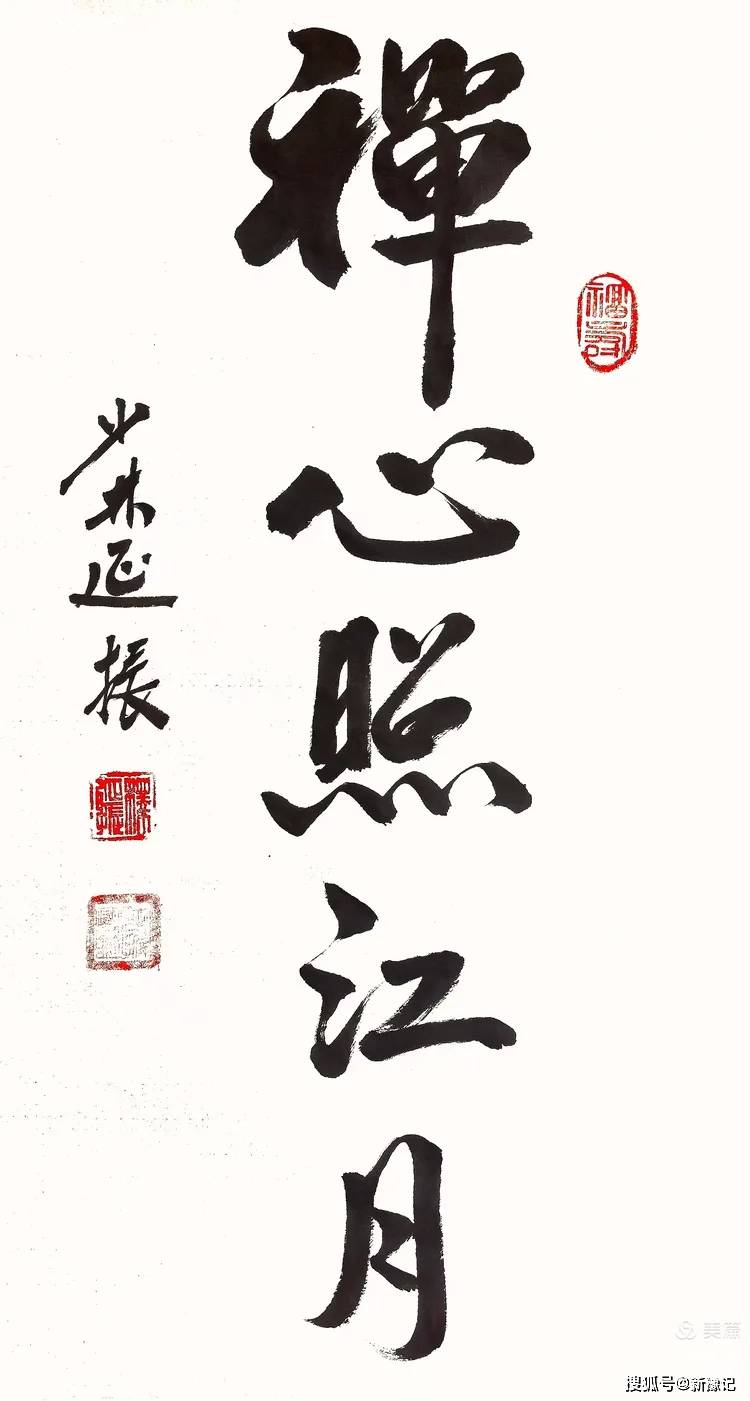 禪心照江月
少林延振
釋延振
美篇
搜狐号@新豫记